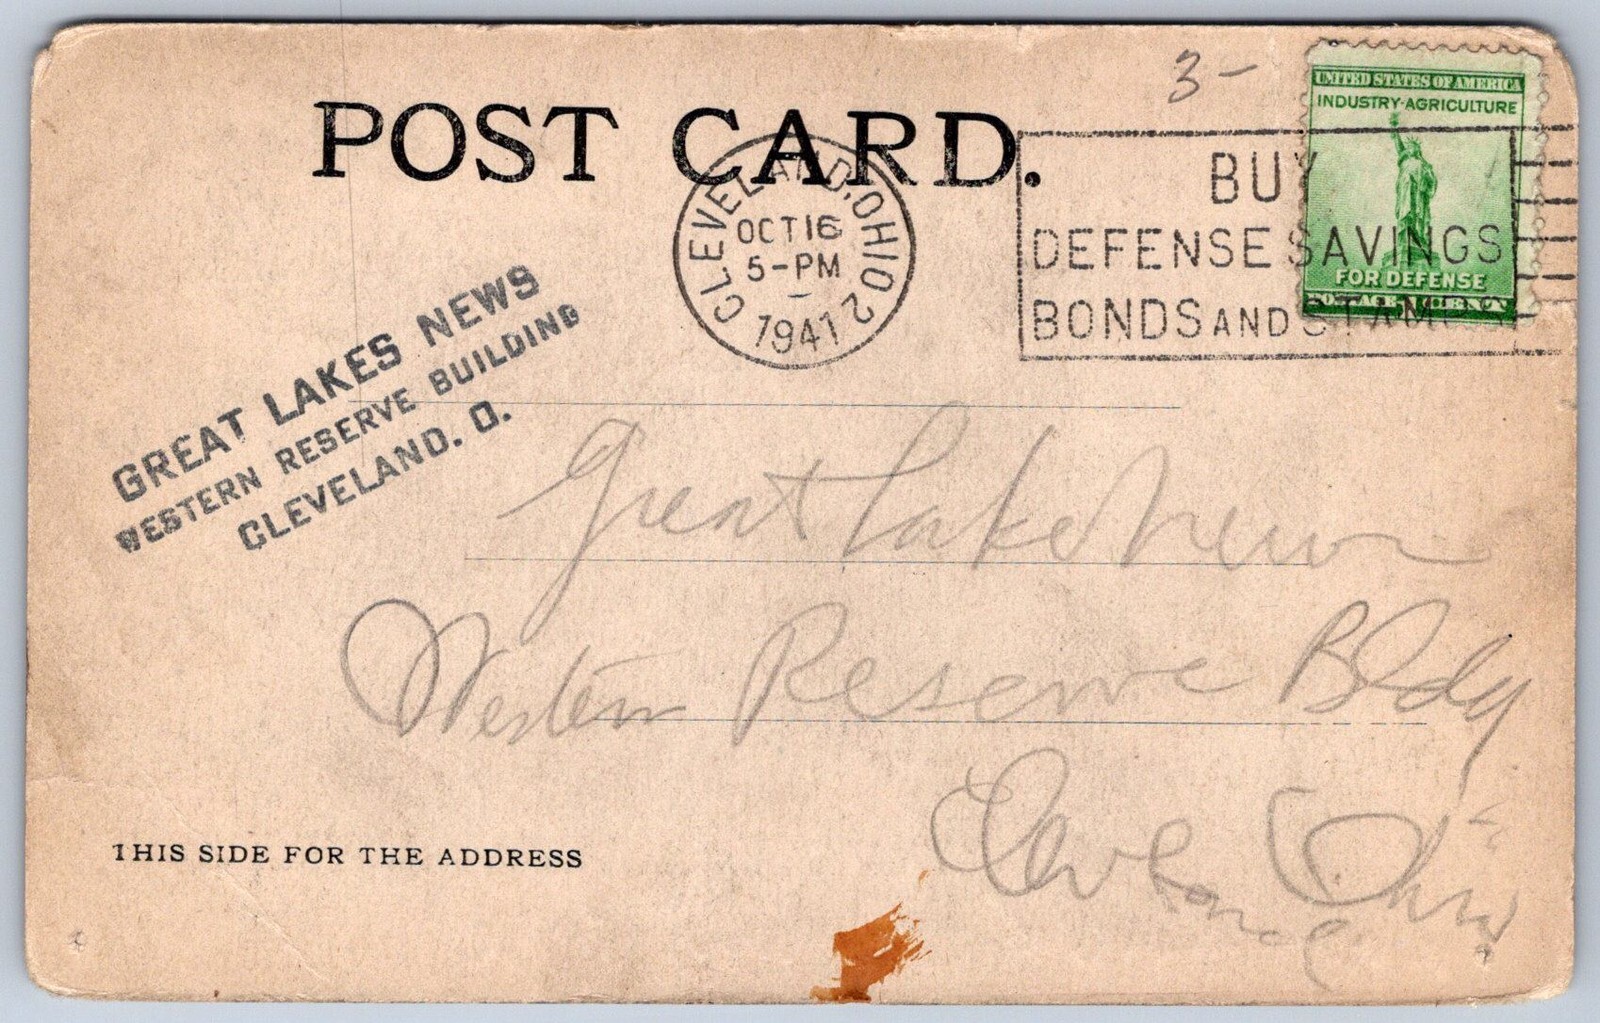 3-
POST CARD.
UNITED STATES OF AMERICA
INDUSTRY-AGRICULTURE
FOR DEFENSE
POSTAGE 1 CENT
CLEVELAND, OHIO 2
OCT 16
5-PM
1941
BUY
DEFENSE SAVINGS
BONDS AND STAMPS
GREAT LAKES NEWS
WESTERN RESERVE BUILDING
CLEVELAND. O.
Great Lake News
Western Reserve Bldg
Cleveland Ohio
THIS SIDE FOR THE ADDRESS